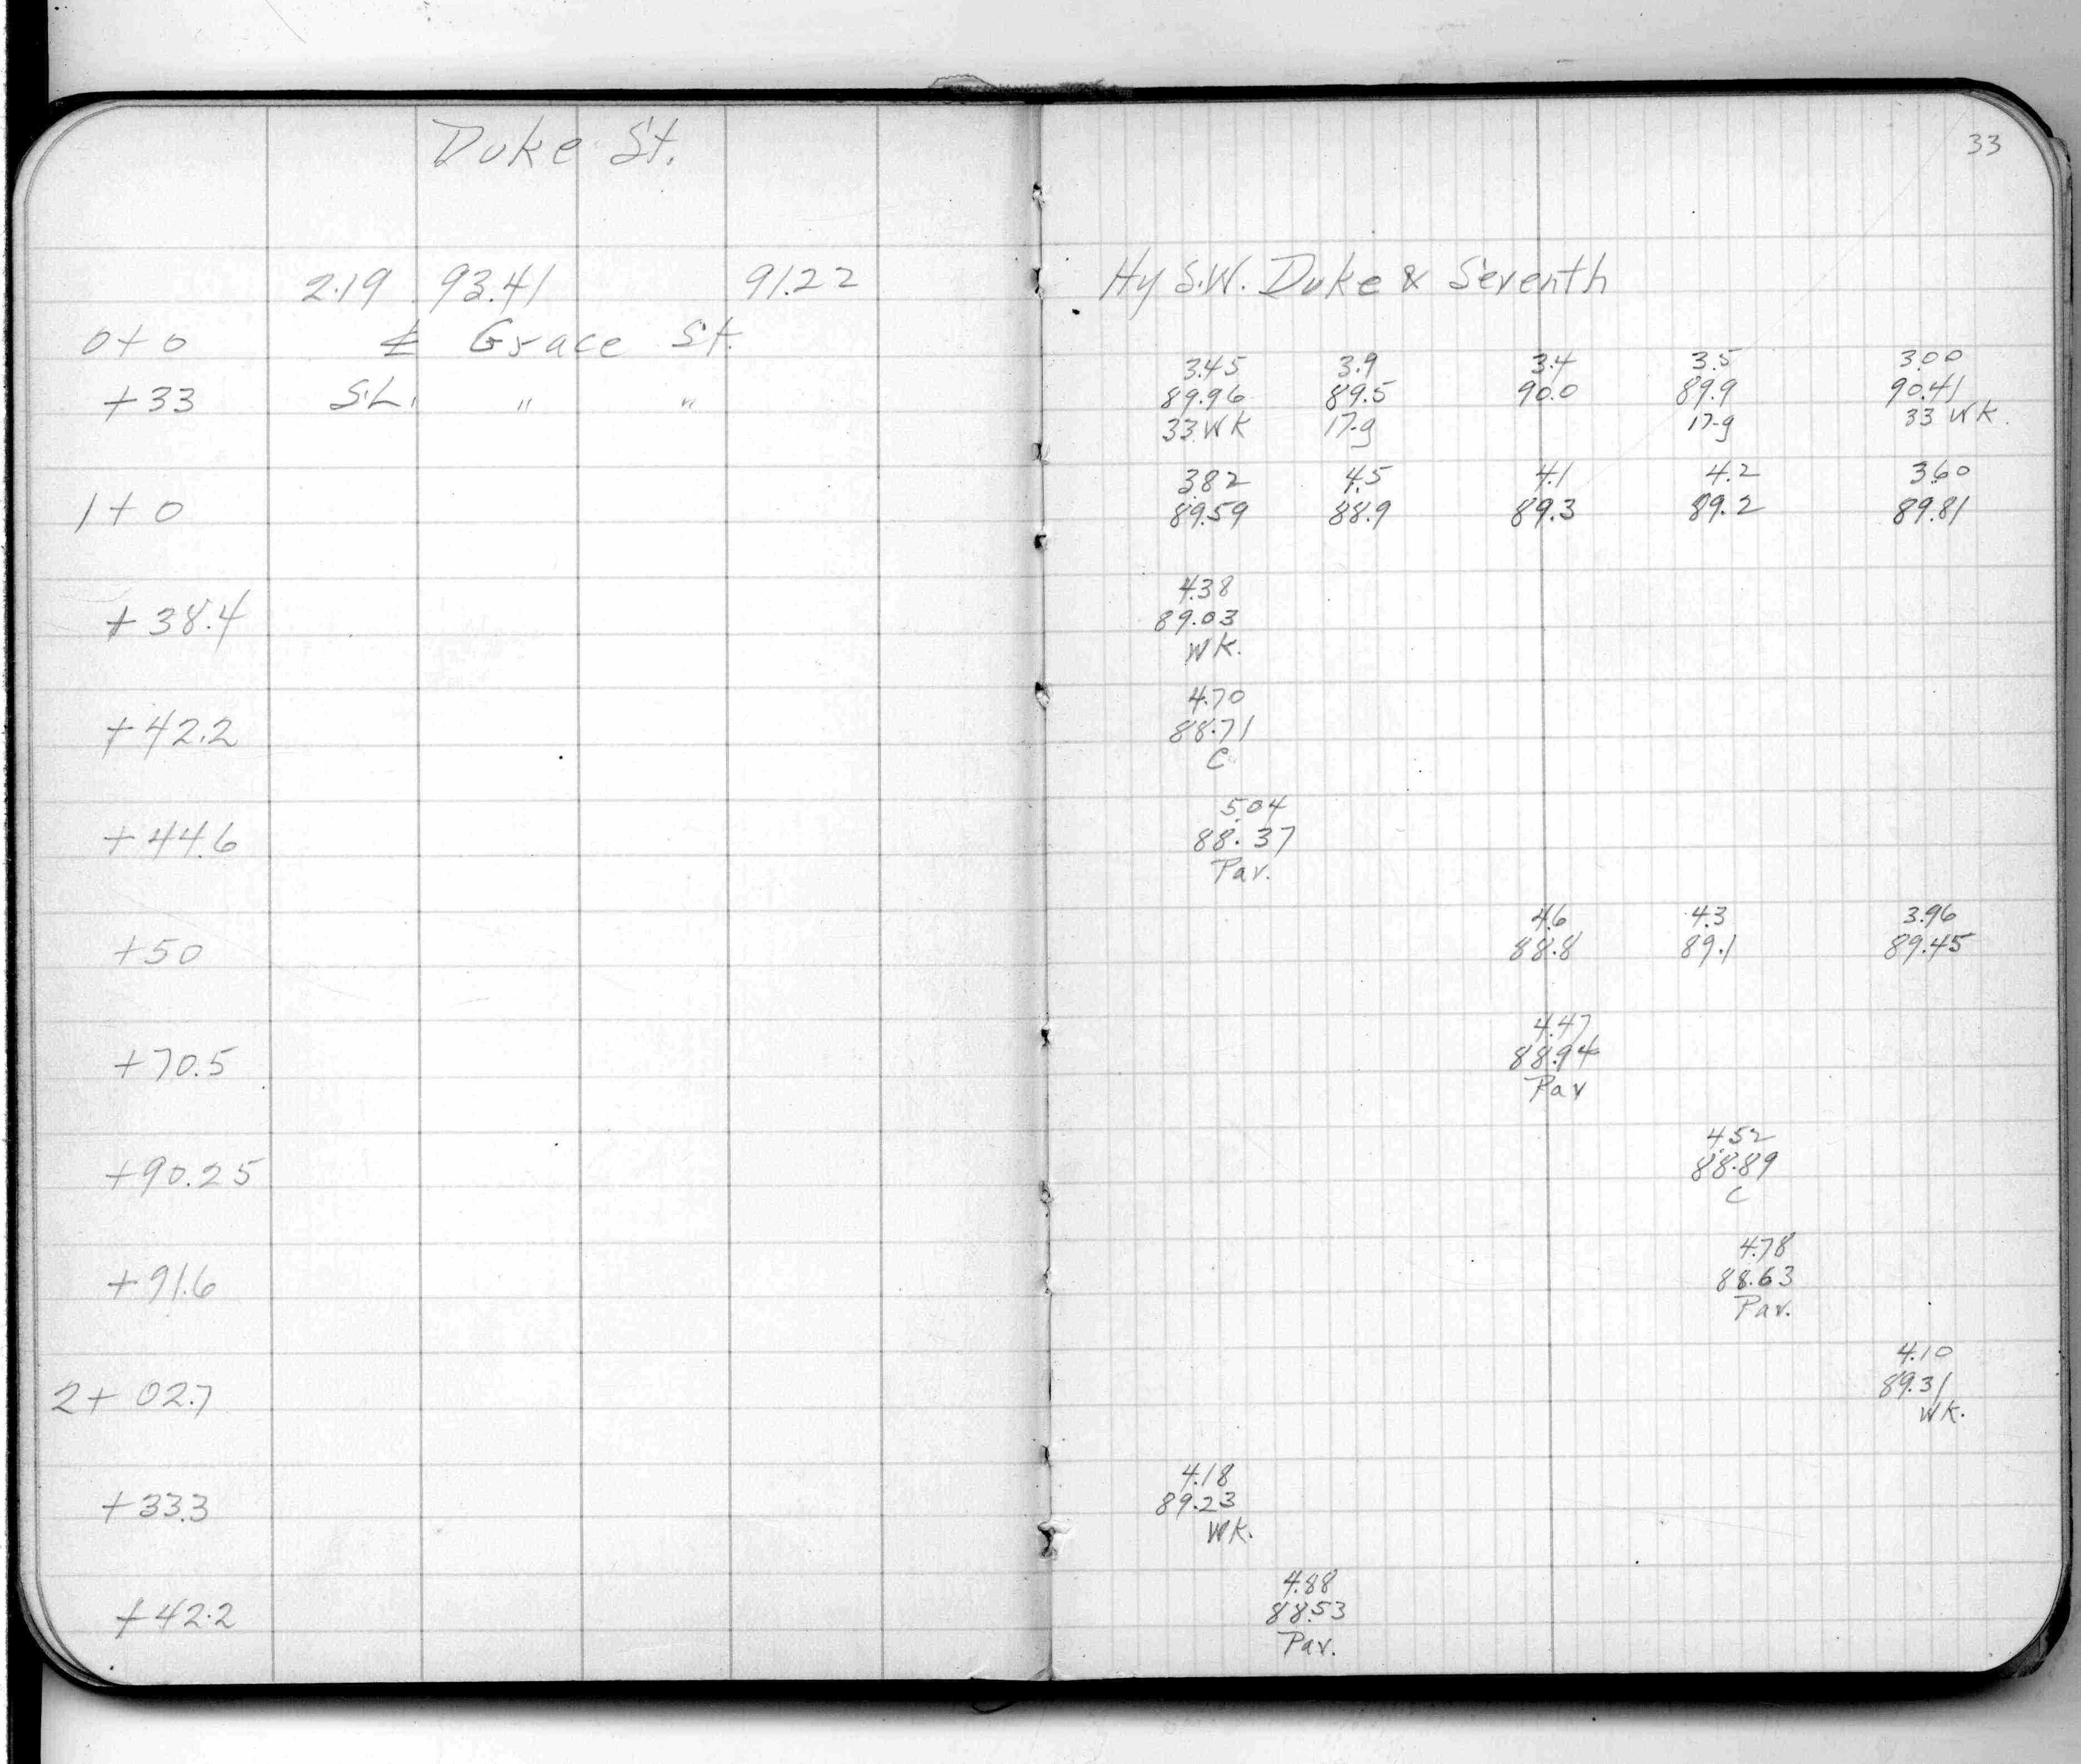 Duke St.
33
2.19 93.41 91.22 Hy S.W. Duke & Seventh
0+0 ⅊ Grace St.
3.45 3.9 3.4 3.5 3.00
+33 S.L. " " 89.96 89.5 90.0 89.9 90.41
33 WK 17-g 17-g 33 WK.
3.82 4.5 4.1 4.2 3.60
1+0 89.59 88.9 89.3 89.2 89.81
4.38
+38.4 89.03
WK.
4.70
+42.2 88.71
C
5.04
+44.6 88.37
Pav.
4.6 4.3 3.96
+50 88.8 89.1 89.45
4.47
+70.5 88.94
Pav
4.52
+90.25 88.89
C
4.78
+91.6 88.63
Pav.
4.10
2+02.7 89.31
WK.
4.18
+33.3 89.23
WK.
4.88
+42.2 88.53
Pav.